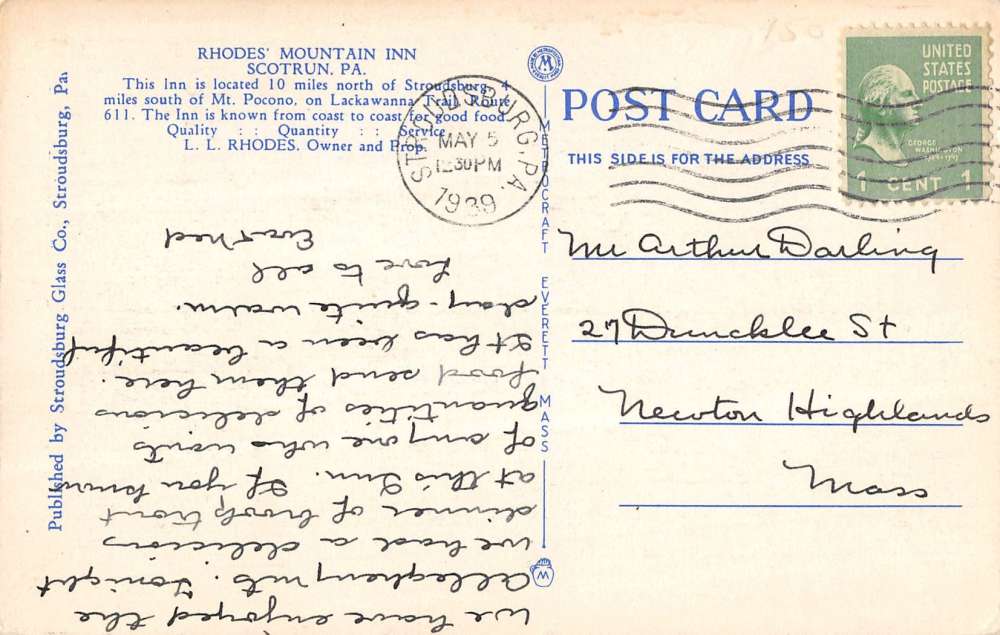 RHODES' MOUNTAIN INN
SCOTRUN, PA.
This Inn is located 10 miles north of Stroudsburg, 4
miles south of Mt. Pocono, on Lackawanna Trail, Route
611. The Inn is known from coast to coast for good food.
Quality : : Quantity : : Service
L. L. RHODES, Owner and Prop.
Published by Stroudsburg Glass Co., Stroudsburg, Pa.
STROUDSBURG, PA.
MAY 5
12 30 PM
1939
METROCRAFT EVERETT MASS
POST CARD
THIS SIDE IS FOR THE ADDRESS
UNITED
STATES
POSTAGE
GEORGE
WASHINGTON
1789-1797
1 CENT 1
Mr Arthur Darling
27 Duncklee St
Newton Highlands
Mass
We have enjoyed the
Allegheny mts. Tonight
we had a delicious
dinner of brook trout
at this Inn. If you know
of anyone who wants
quantities of delicious
food send them here.
It has been a beautiful
day - quite warm.
Love to all
Eva + Ned